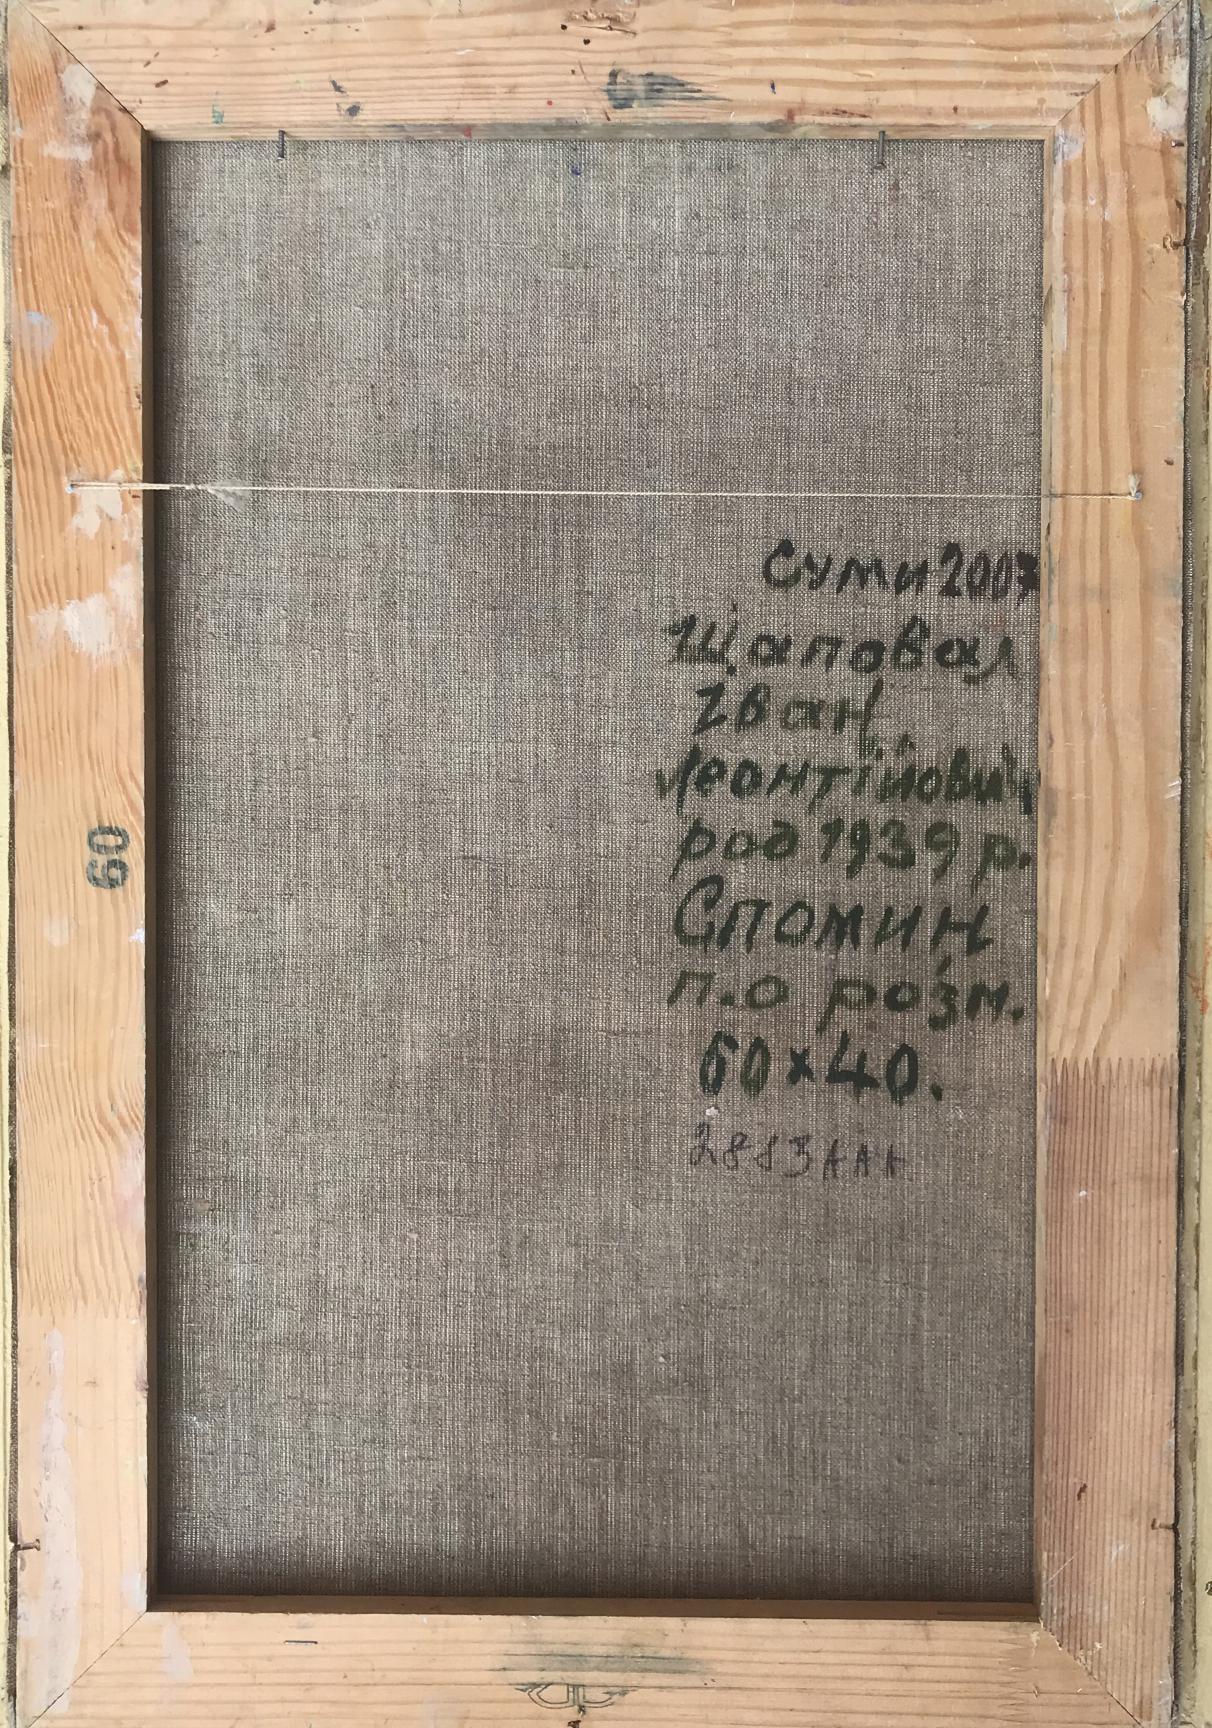 Суми 2007
Шаповал
Іван
Леонтійович
род 1939 р.
Спомин
п.о розм.
60х40.
60